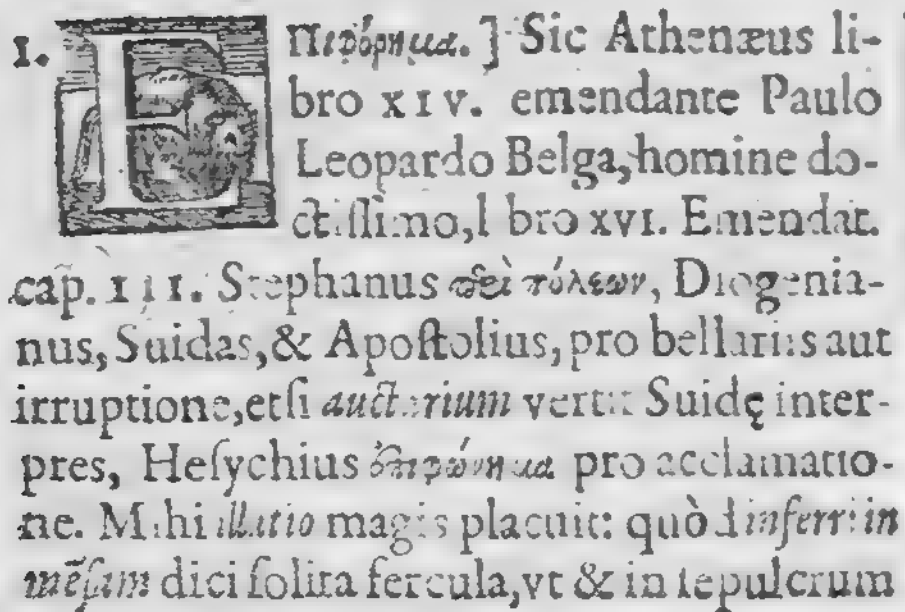 I. EΠιφόρημα.] Sic Athenæus li-
bro XIV. emendante Paulo
Leopardo Belga, homine do-
ctiſſimo, libro XVI. Emendat.
cap. III. Stephanus περὶ πόλεων, Diogenia-
nus, Suidas, & Apoſtolius, pro bellariis aut
irruptione, etſi auctarium vertit Suidę inter-
pres, Heſychius ἐπιφώνημα pro acclamatio-
ne. Mihi illatio magis placuit: quòd inferri in
mēſam dici ſolita fercula, vt & in ſepulcrum